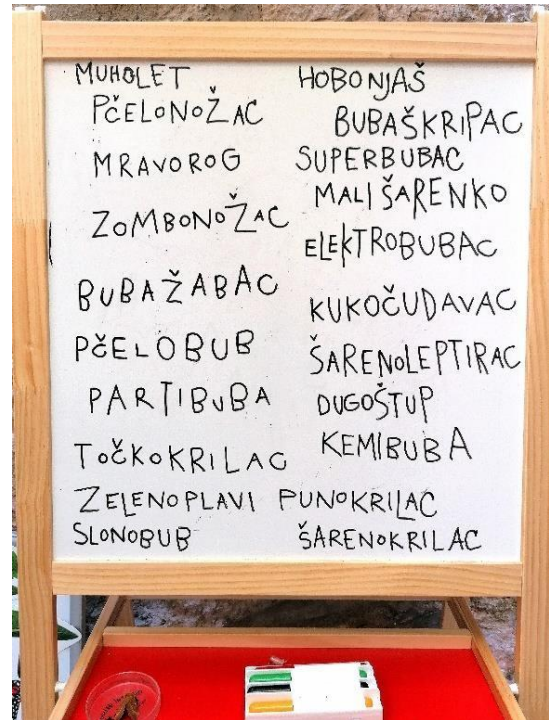 MUHOLET
PČELONOŽAC
MRAVOROG
ZOMBONOŽAC
BUBAŽABAC
PČELOBUB
PARTIBUBA
TOČKOKRILAC
ZELENOPLAVI PUNOKRILAC
SLONOBUB
HOBONJAŠ
BUBAŠKRIPAC
SUPERBUBAC
MALI ŠARENKO
ELEKTROBUBAC
KUKOČUDAVAC
ŠARENOLEPTIRAC
DUGOŠTUP
KEMIBUBA
ŠARENOKRILAC